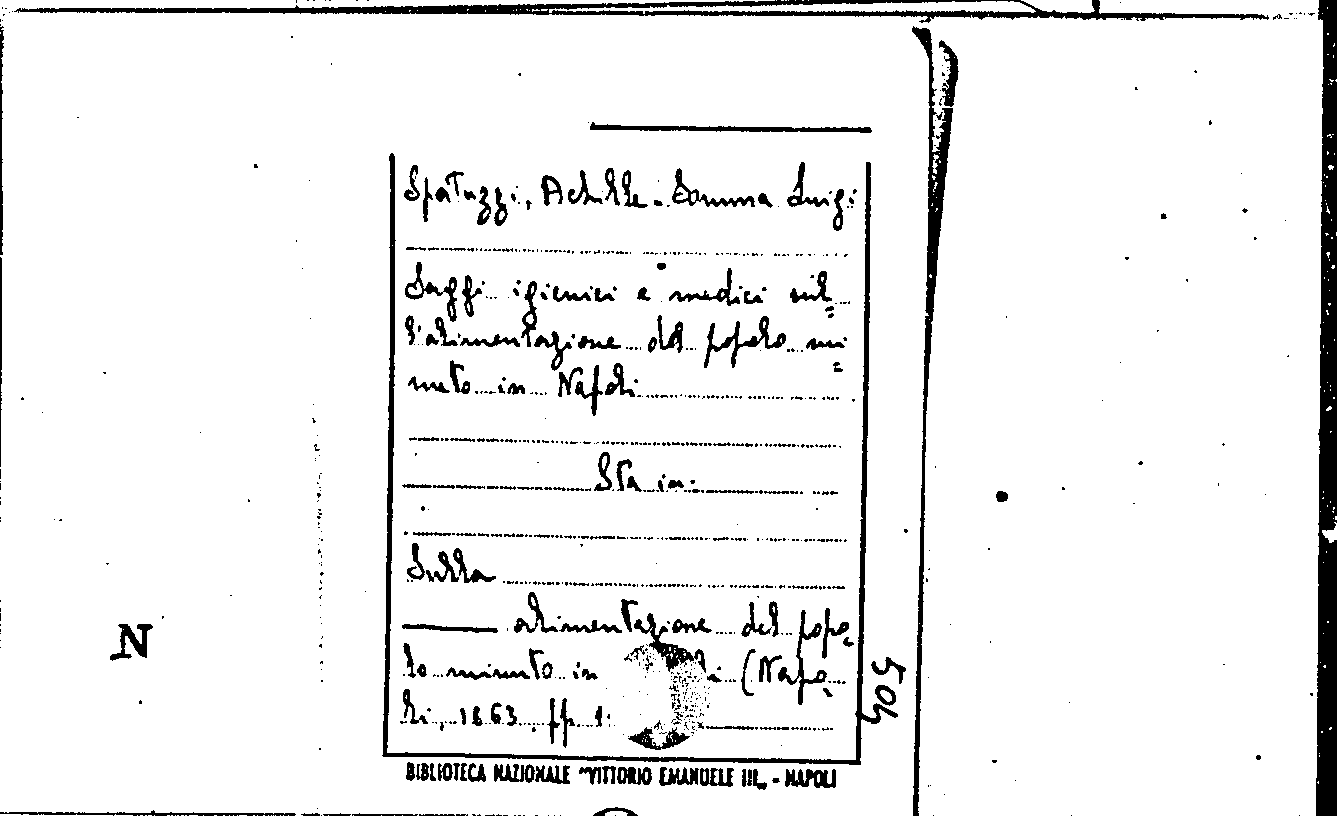 Spatuzzi, Achille - Somma Luigi
Saggi igienici e medici sul=
l'alimentazione del popolo mi=
nuto in Napoli
Sta in:
Sulla
alimentazione del popo-
lo minuto in (Napo-
li, 1863, pp 1-
504
N
BIBLIOTECA NAZIONALE "VITTORIO EMANUELE III„ - NAPOLI